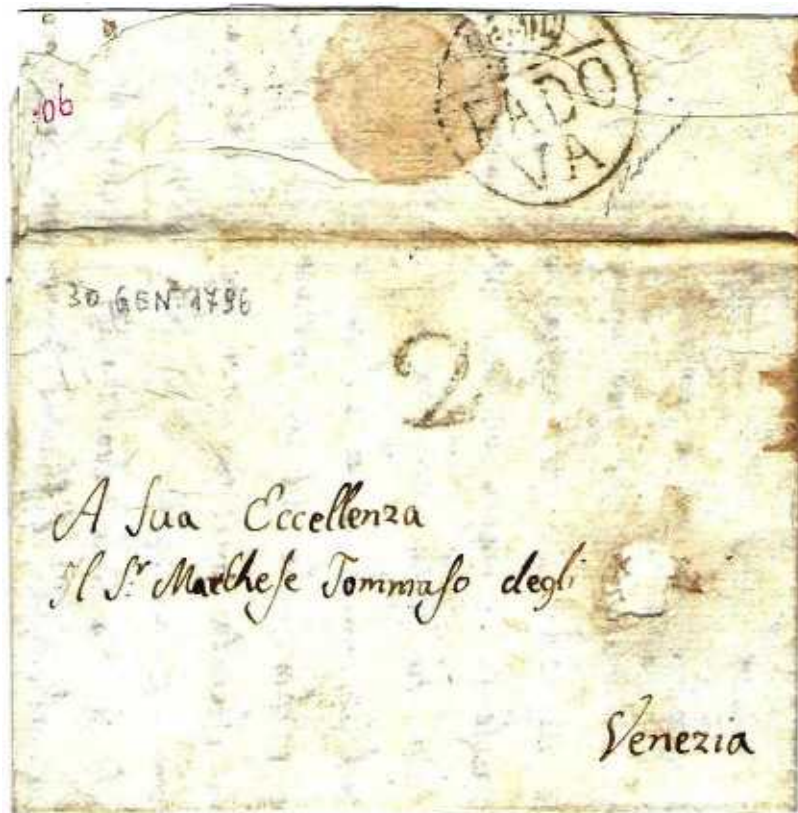 PADO
VA
30 GEN. 1796
2
A Sua Eccellenza
Il S.r Marchese Tommaso degli
Venezia